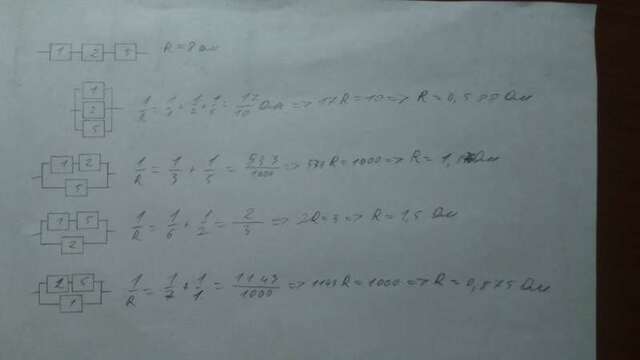 1 2 5 R = 8 Ом
1 2 5 1/R = 1/1 + 1/2 + 1/5 = 17/10 Ом => 17R = 10 => R = 0,5 Ом
1 2 5 1/R = 1/3 + 1/5 = 533/1000 => 533R = 1000 => R = 1, Ом
1 5 2 1/R = 1/6 + 1/2 = 2/3 => 2R = 3 => R = 1,5 Ом
2 5 1 1/R = 1/7 + 1/1 = 1143/1000 => 1143R = 1000 => R = 0,875 Ом